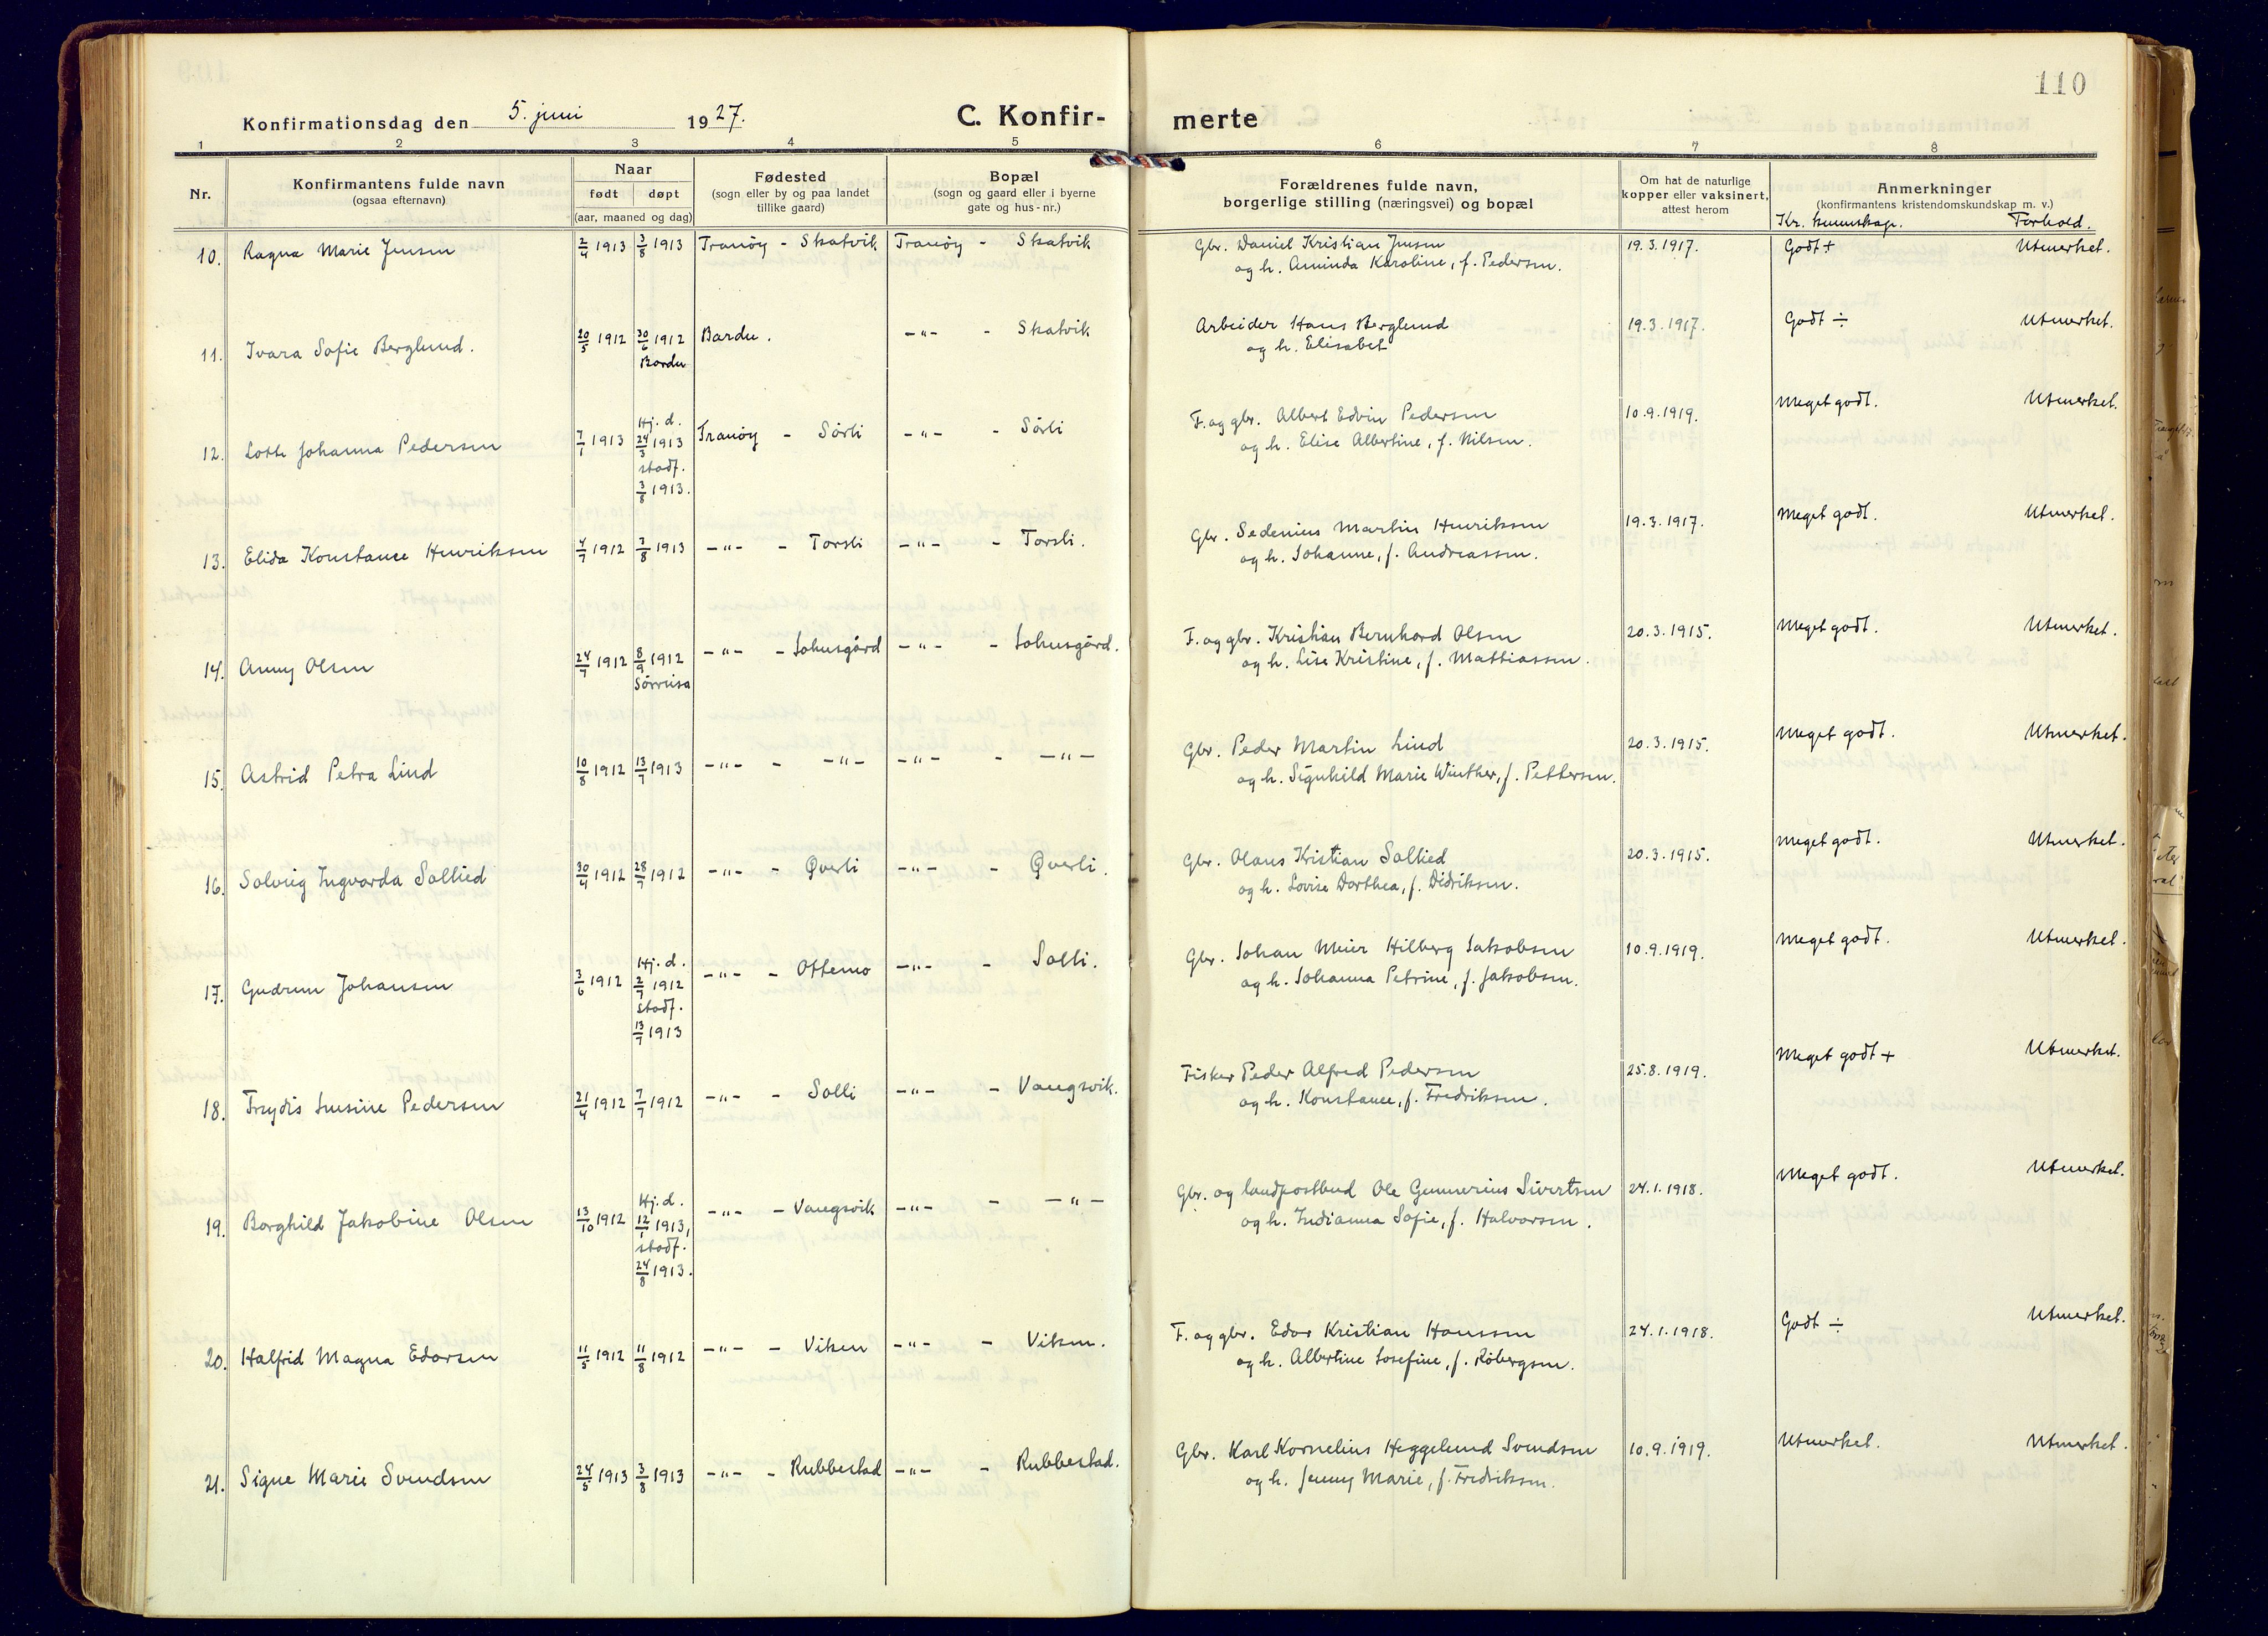 110
Konfirmationsdag den 5. juni 1927. C. Konfirmerte
1 2 3 4 5 6 7 8
Nr.
Konfirmantens fulde navn
(ogsaa efternavn)
Naar
født døpt
(aar, maaned og dag)
Fødested
(sogn eller by og paa landet
tillike gaard)
Bopæl
(sogn og gaard eller i byerne
gate og hus-nr.)
Forældrenes fulde navn,
borgerlige stilling (næringsvei) og bopæl
Om hat de naturlige
kopper eller vaksinert,
attest herom
Anmerkninger
(konfirmantens kristendomskundskap m. v.)
Kr. kunnskap. Forhold.
10. Ragna Marie Jensen 2/4 1913 3/8 1913 Tranøy - Skatvik Tranøy - Skatvik Gbr. Daniel Kristian Jensen 19.3.1917. Godt + Utmerket.
og h. Aminda Karoline, f. Pedersen.
11. Ivara Sofie Berglund. 20/5 1912 30/6 1912 Bardu. -"- - Skatvik Arbeider Hans Berglund 19.3.1917. Godt ÷ Utmerket.
Bardu og h. Elisabet
12. Lotte Johanna Pedersen 7/1 1913 Hj. d. 24/3 1913 Tranøy - Sørli -"- - Sørli F. og gbr. Albert Edvin Pedersen 10.9.1919. Meget godt. Utmerket.
stadf. og h. Elise Albertine, f. Nilsen.
3/8 1913.
13. Elida Konstanse Henriksen 4/7 1912 3/8 1913 -"- - Torsli -"- - Torsli. Gbr. Sedenius Martin Henriksen 19.3.1917. Meget godt. Utmerket.
og h. Johanne, f. Andreassen.
14. Anny Olsen 24/7 1912 8/9 1912 -"- - Johusgård -"- - Johusgård. F. og gbr. Kristian Bernhard Olsen 20.3.1915. Meget godt. Utmerket.
Sørreisa og h. Lise Kristine, f. Mattiassen.
15. Astrid Petra Lind 10/8 1912 13/7 1913 -"- - -"- -"- - -"- Gbr. Peder Martin Lind 20.3.1915. Meget godt. Utmerket.
og h. Signhild Marie Winther, f. Pettersen.
16. Solveig Ingvarda Sollied 30/4 1912 28/7 1912 -"- - Øverli -"- - Øverli. Gbr. Olaus Kristian Sollied 20.3.1915. Meget godt. Utmerket.
og h. Lovise Dorthea, f. Didriksen.
17. Gudrun Johansen 3/6 1912 Hj. d. 2/7 1912 -"- - Ottemo -"- - Solli. Gbr. Johan Meier Hilberg Jakobsen 10.9.1919. Meget godt. Utmerket.
stadf. og h. Johanna Petrine, f. Jakobsen.
13/7 1913
18. Frydis Jensine Pedersen 21/4 1912 7/7 1912 -"- - Solli -"- - Vangsvik. Fisker Peder Alfred Pedersen 25.8.1919. Meget godt + Utmerket.
og h. Konstance, f. Fredriksen.
19. Borghild Jakobine Olsen 13/10 1912 Hj. d. 12/1 1913, -"- - Vangsvik -"- - -"- Gbr. og landpostbud Ole Gunnerius Sivertsen 24.1.1918. Meget godt. Utmerket.
stadf. og h. Indianna Sofie, f. Halvorsen.
24/8 1913.
20. Halfrid Magna Edorsen 11/5 1912 11/8 1912 -"- - Viken -"- - Viken. F. og gbr. Edor Kristian Hanssen 24.1.1918. Godt ÷ Utmerket.
og h. Albertine Josefine, f. Robergsen.
21. Signe Marie Svendsen 24/5 1913 3/8 1913 -"- - Rubbestad -"- - Rubbestad. Gbr. Karl Kornelius Heggelund Svendsen 10.9.1919. Utmerket. Utmerket.
og h. Jenny Marie, f. Fredriksen.